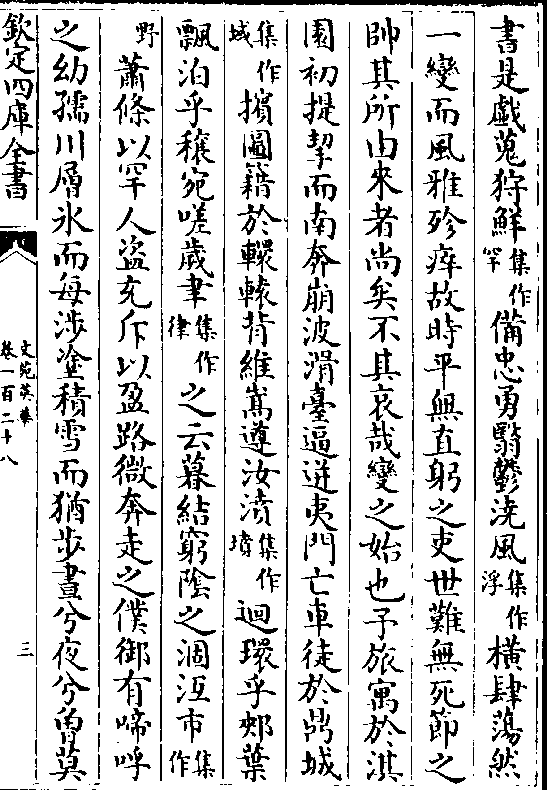 書是戯蒐狩鮮集作罕備忠勇翳鬱澆風集作浮橫肆蕩然
一變而風雅殄瘁故時平無直躬之吏世難無死節之
帥其所由來者尚矣不其哀哉變之始也予旅寓於淇
園初提挈而南奔崩波滑臺逼迸夷門亡車徒於鬲城
集作域擯圖籍於轘轅背維嵩遵汝濆集作墳迴環乎郟葉
飄泊乎穰宛嗟歲聿集作律之云暮結窮陰之涸沍市集作
野蕭條以罕人盗充斥以盈路微奔走之僕御有啼呼
之幼孺川層氷而每涉塗積雪而猶步晝兮夜兮曽莫
欽定四庫全書
文苑英華
卷一百二十八
三